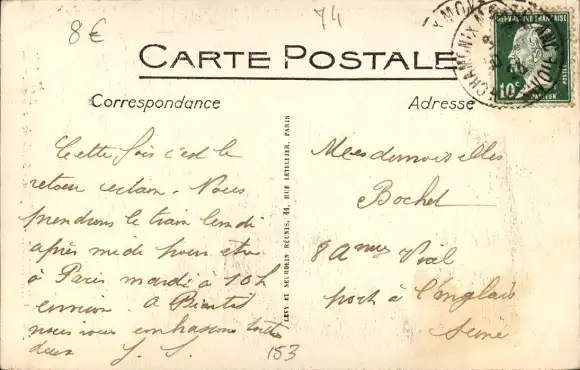 8€
74
CARTE POSTALE
Correspondance
Adresse
RÉPUBLIQUE FRANÇAISE
10c
POSTES
PASTEUR
CHAMONIX MONT-BLANC
Cette fois c'est le
retour certain. Nous
prendrons le train lundi
après midi pour être
à Paris mardi à 10h
environ. A Bientôt
nous vous embrassons toutes
deux
LEVY ET NEURDEIN RÉUNIS, 44, RUE LETELLIER, PARIS
Mesdemoiselles
Bochet
8 Vial
port à l'anglais
Seine
153